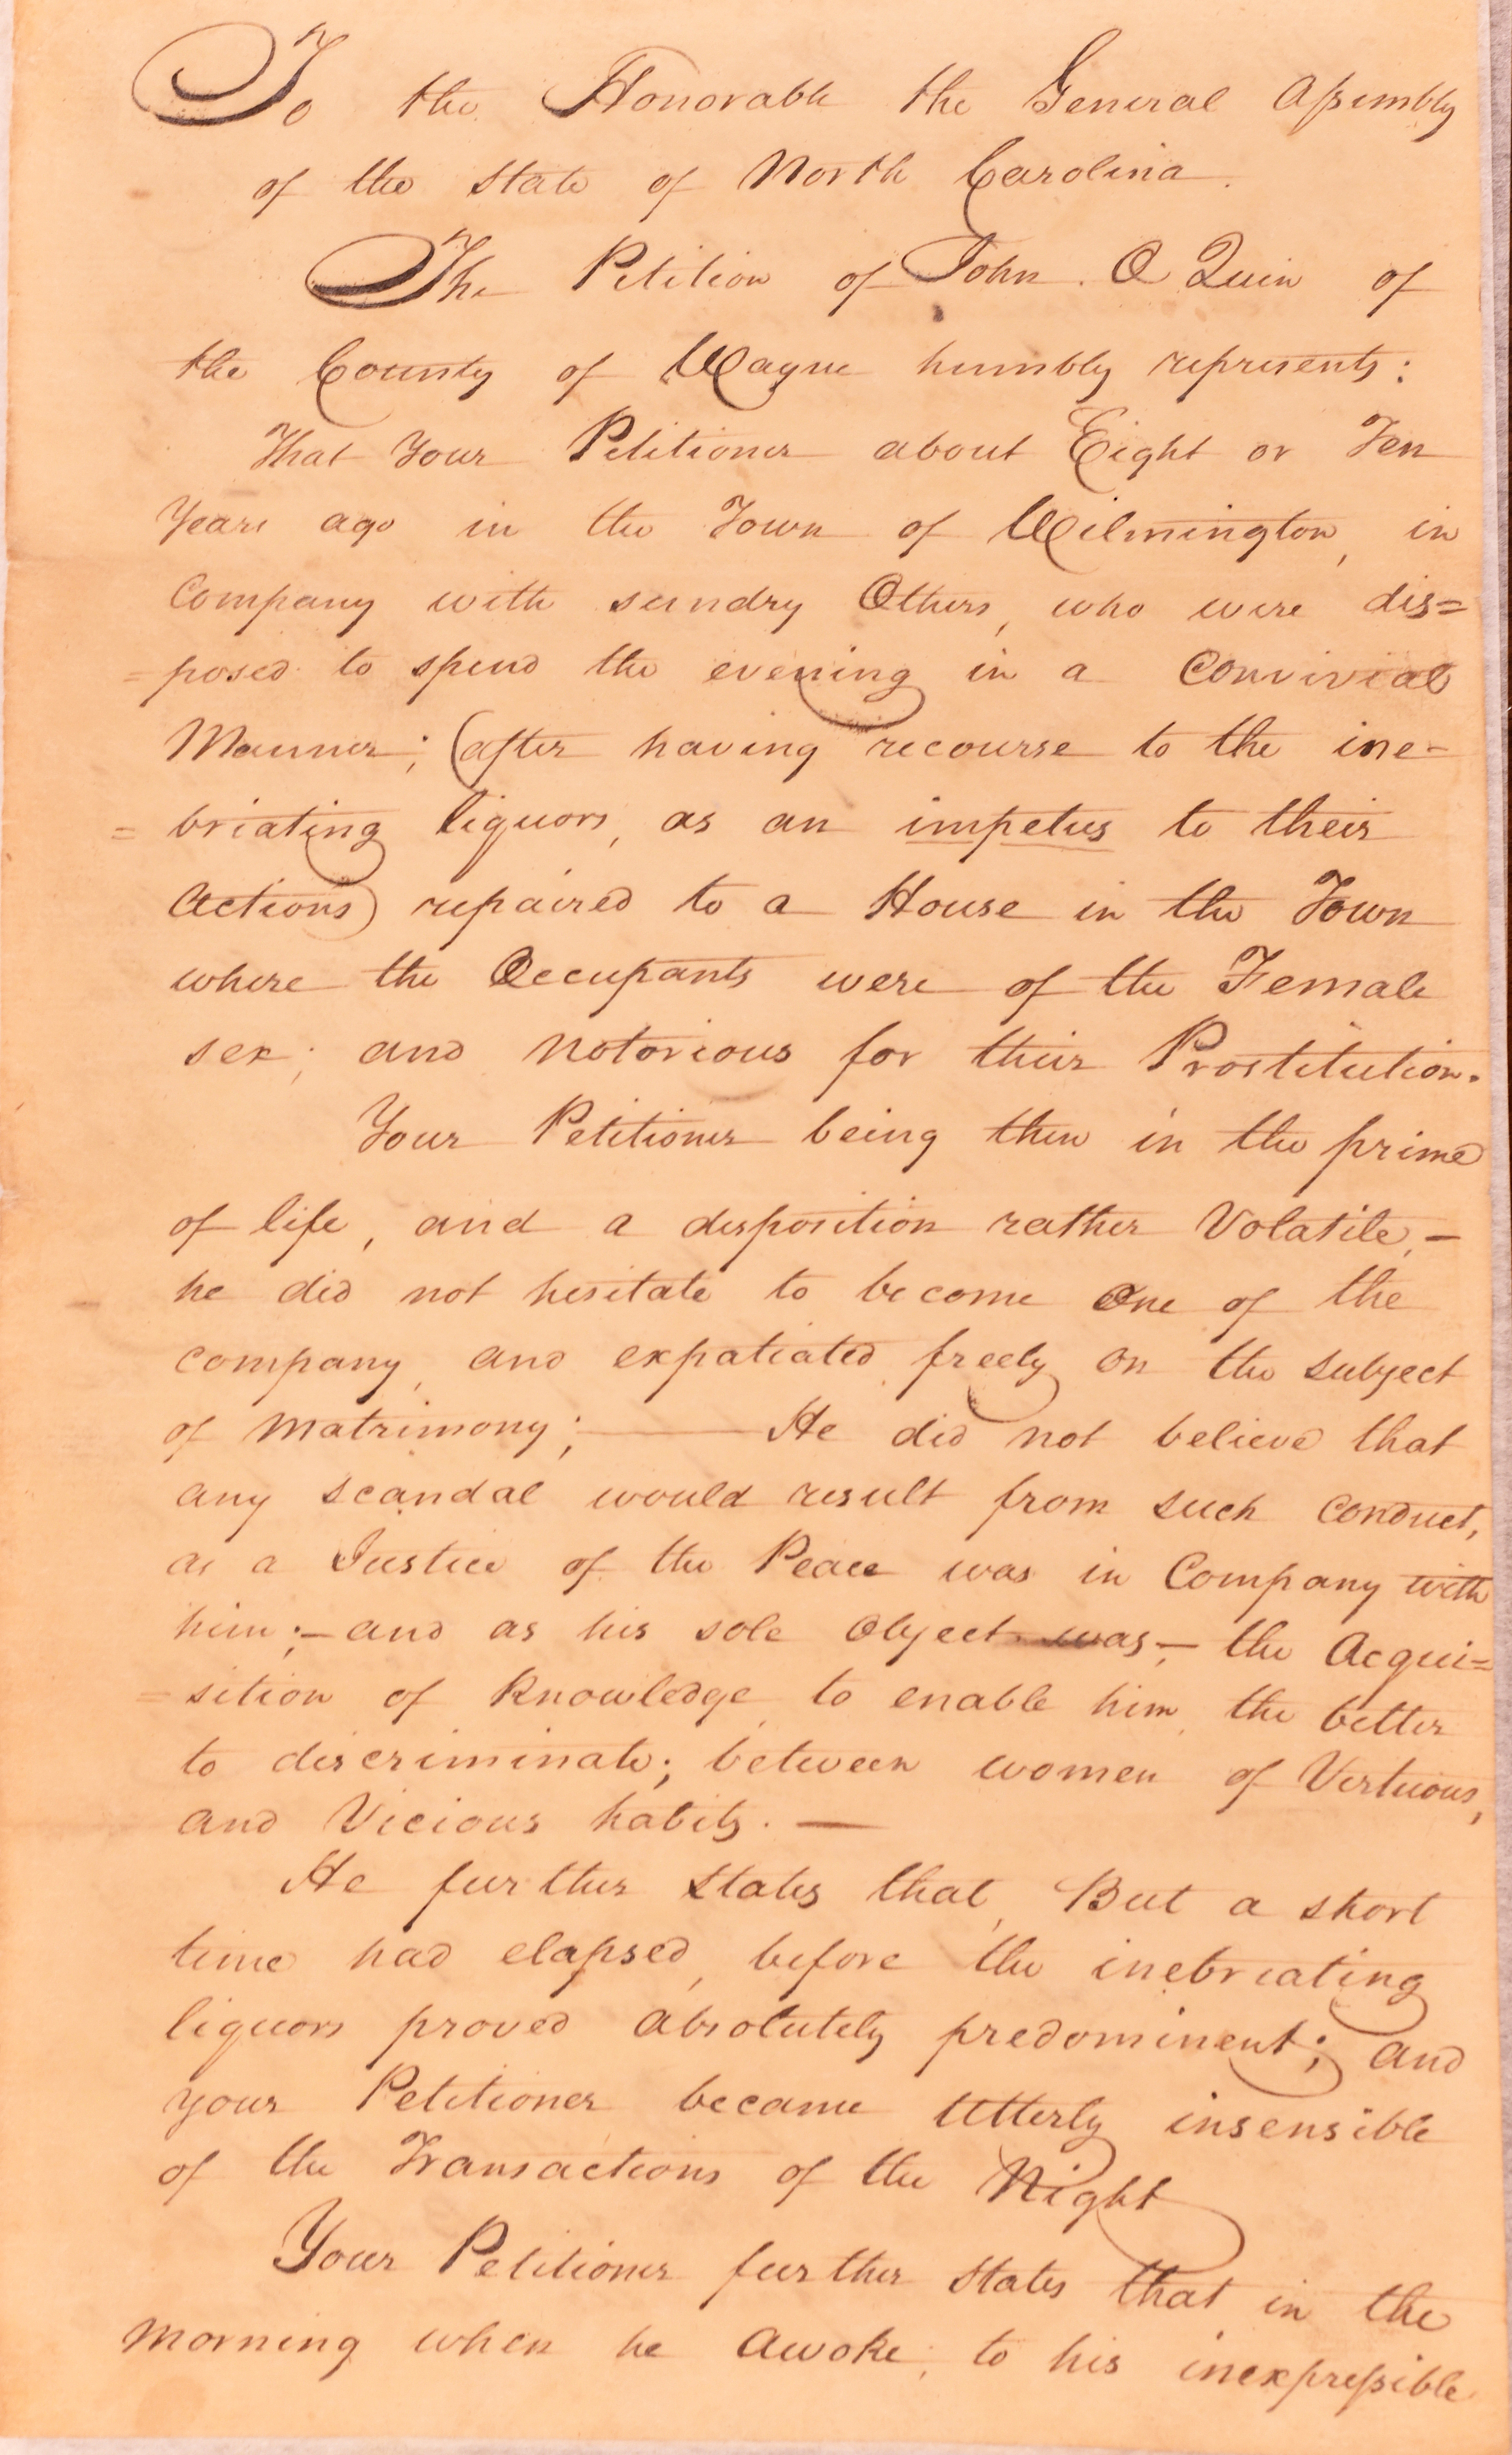 To the Honorable the General Assembly
of the State of North Carolina.
The Petition of John O Quin of
the County of Wayne humbly represents:
That Your Petitioner about Eight or Ten
Years ago in the Town of Wilmington, in
Company with sundry Others, who were dis=
=posed to spend the evening in a Convivial
Manner; (after having recourse to the ine-
=briating liquors, as an impetus to their
Actions) repaired to a House in the Town
where the Occupants were of the Female
sex; and notorious for their Prostitution.
Your Petitioner being then in the prime
of life, and a disposition rather Volatile, —
he did not hesitate to become One of the
company, and expatiated freely on the subject
of Matrimony; — He did not believe that
any scandal would result from such Conduct,
as a Justice of the Peace was in Company with
him; — and as his sole Object was, — the Acqui=
=sition of Knowledge, to enable him, the better
to discriminate; between women of Virtuous,
and Vicious habits. —
He further States that, But a short
time had elapsed, before the inebriating
liquors proved absolutely predominent; and
your Petitioner became Utterly insensible
of the Transactions of the Night
Your Petitioner further States that in the
morning when he Awoke; to his inexpressible